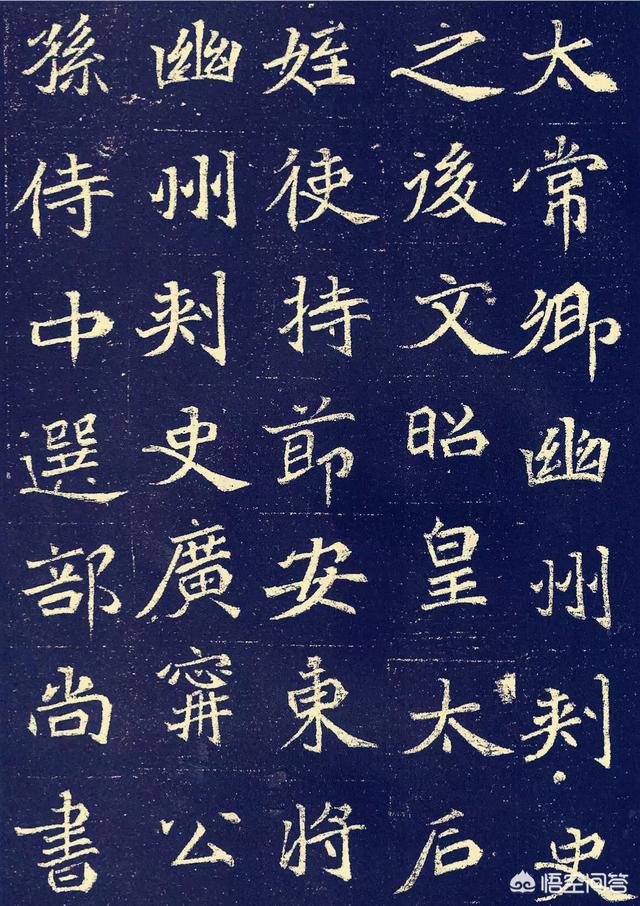 太常卿幽州刺史
之後文昭皇太后
姪使持節安東將
幽州刺史廣寧公
孫侍中選部尚書
悟空问答